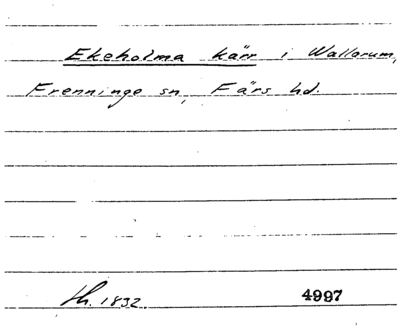 Ekeholma kärr i Wallarum,
Frenninge sn, Färs hd.
Th. 1832. 4997